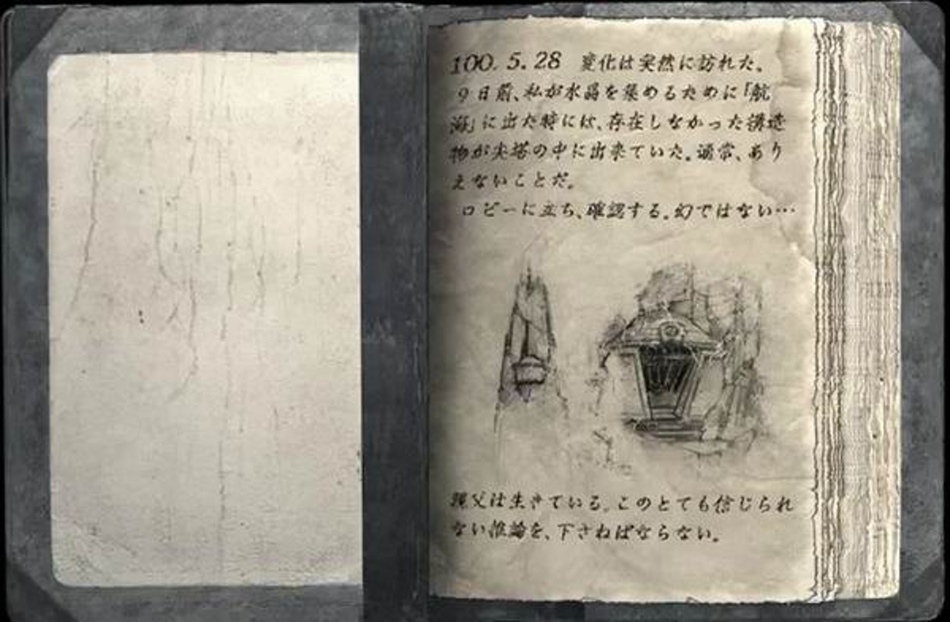 100. 5. 28 変化は突然に訪れた。
９日前、私が水晶を集めるために「航
海」に出た時には、存在しなかった構造
物が尖塔の中に出来ていた。通常、あり
えないことだ。
ロビーに立ち、確認する。幻ではない…
親父は生きている。このとても信じられ
ない推論を、下さねばならない。